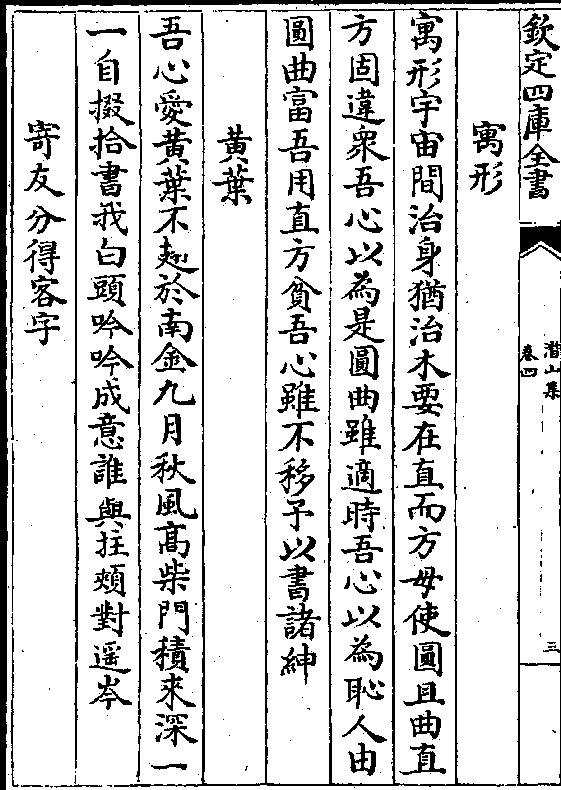 欽定四庫全書
潜山集
卷四
三
寓形
寓形宇宙間治身猶治木要在直而方毋使圓且曲直
方固違衆吾心以為是圓曲雖適時吾心以為恥人由
圓曲富吾用直方貧吾心雖不移予以書諸紳
黃葉
吾心愛黃葉不趐於南金九月秋風髙柴門積来深一
一自掇拾書我白頭吟吟成意誰與拄頰對遥岑
寄友分得客字